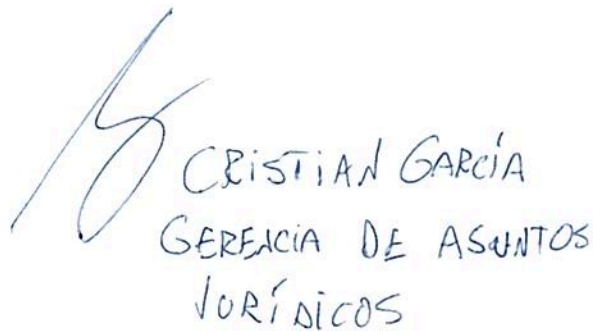 CRISTIAN GARCÍA
GERENCIA DE ASUNTOS
JURÍDICOS